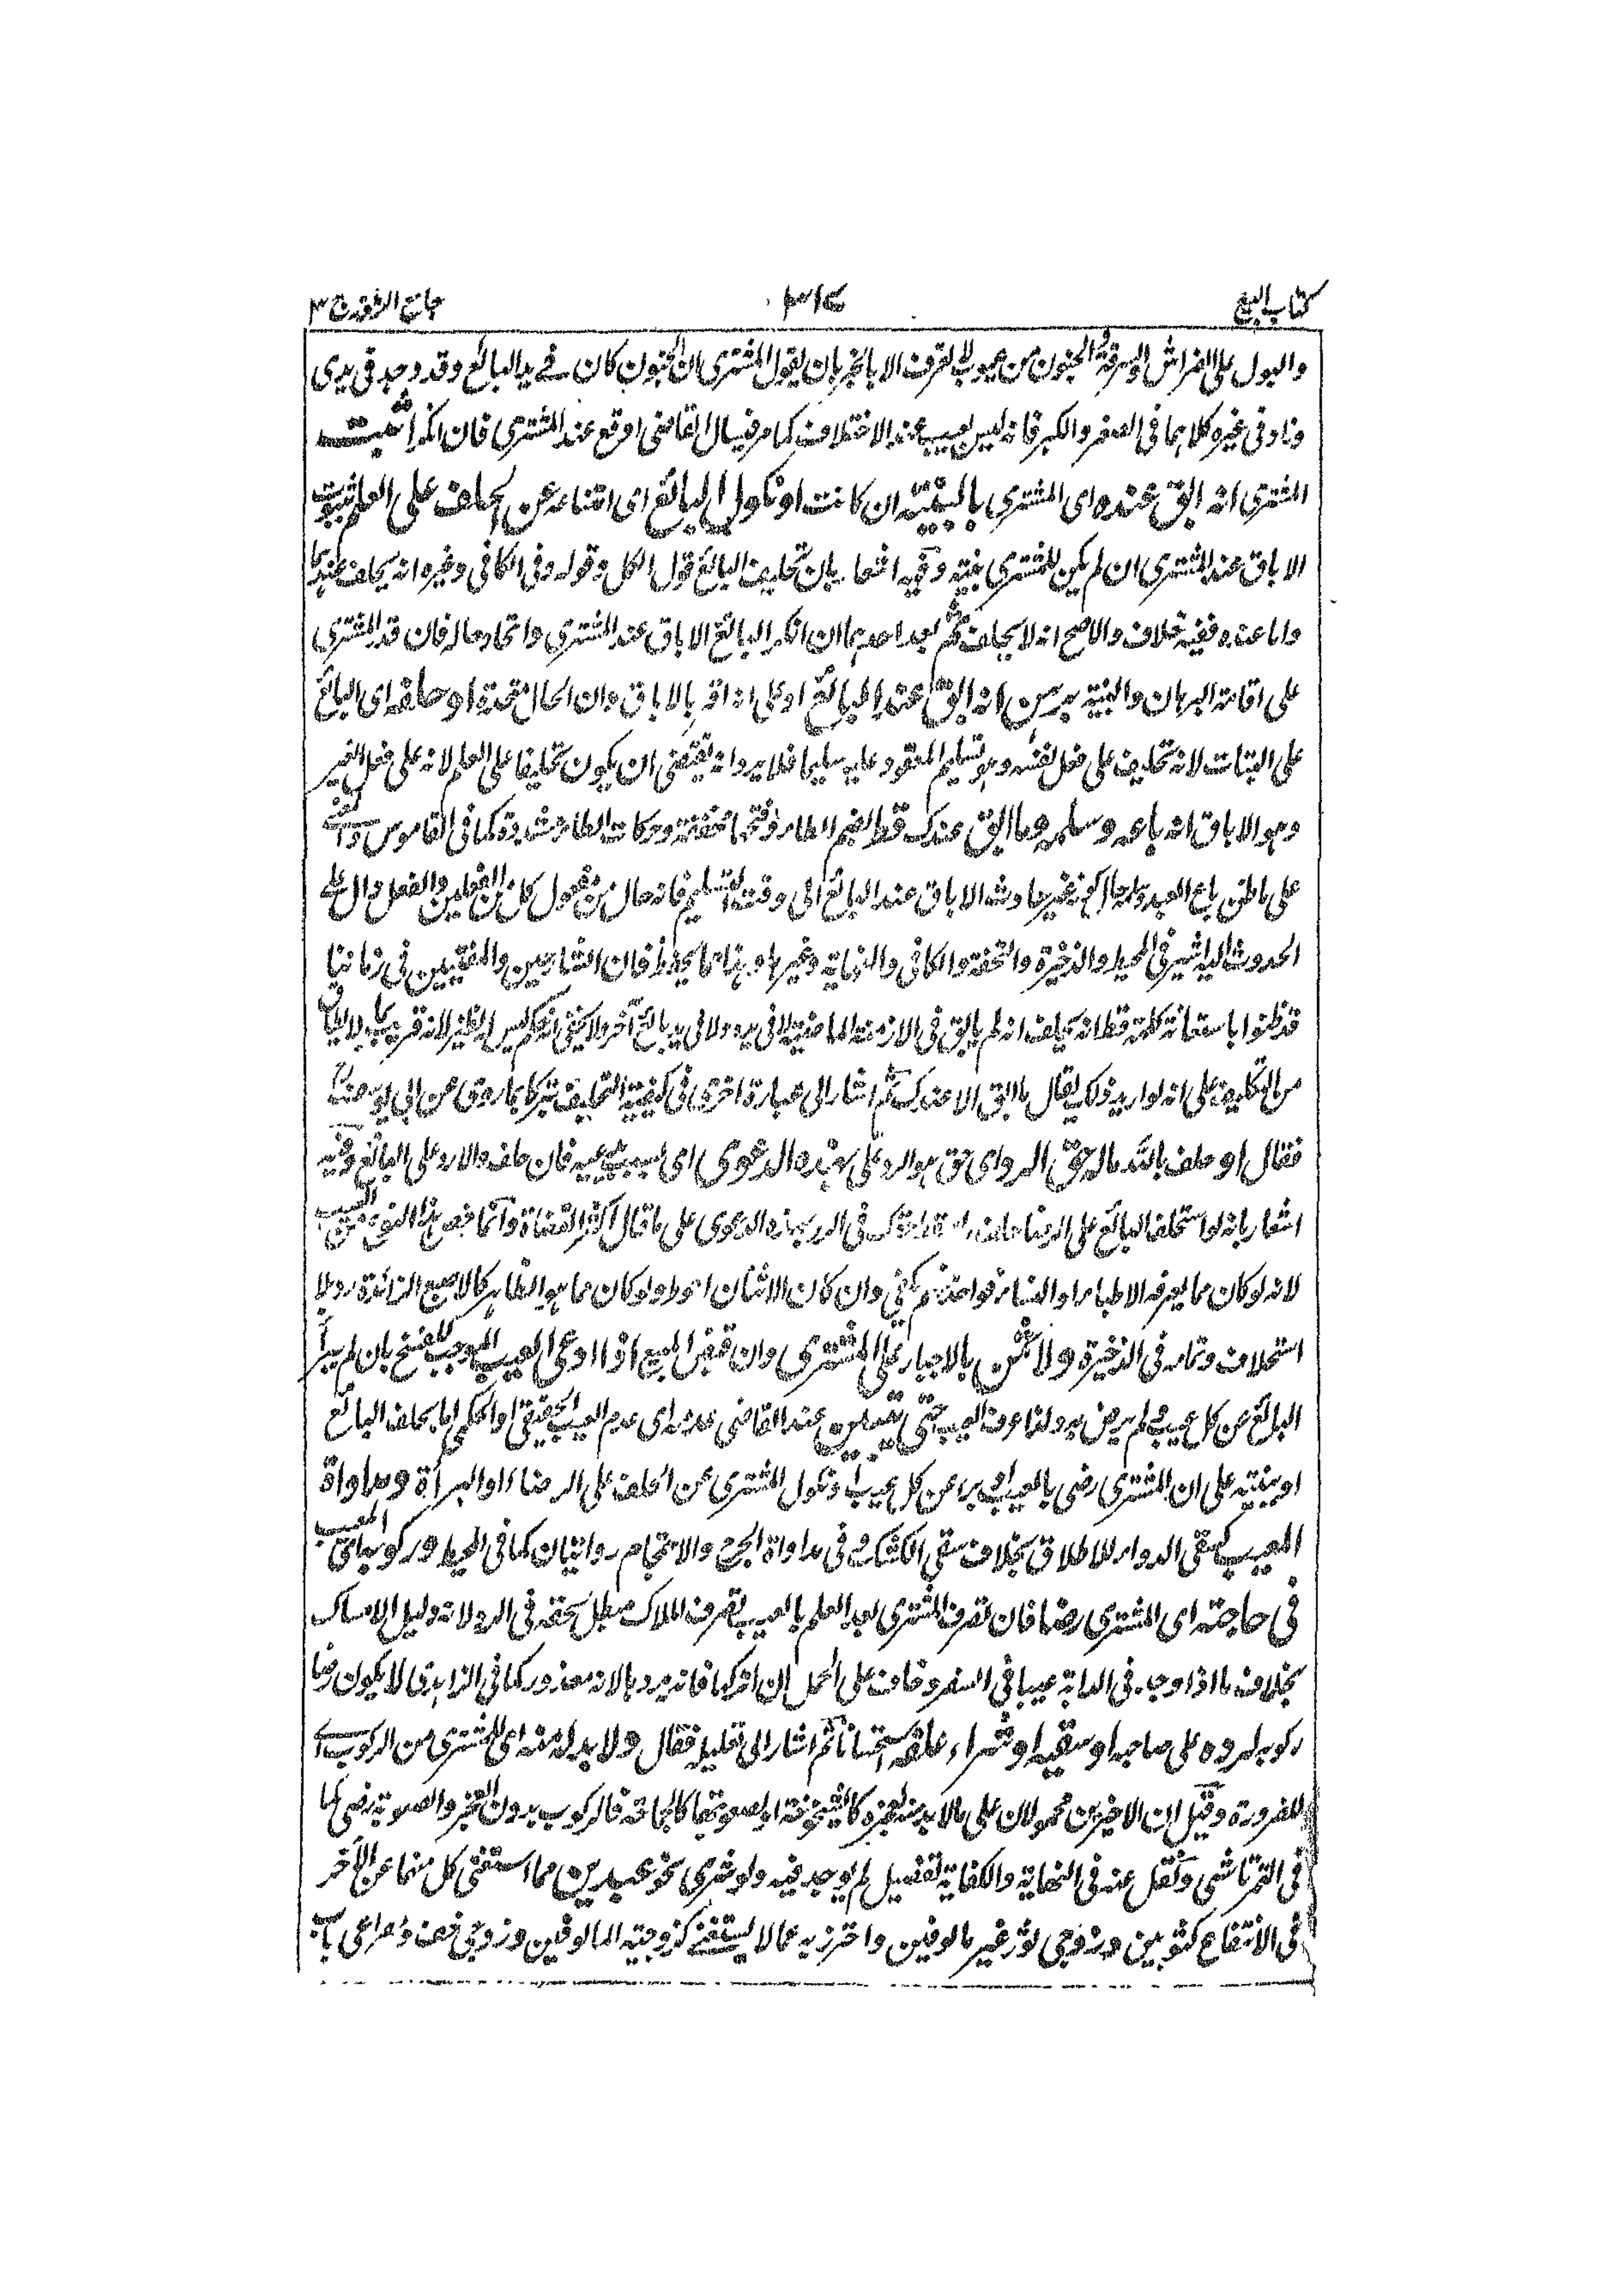 كتاب البيع ٣١٤ جامع الرموز ج ٣
والبول على الفراش والسرقة والجنون من عيوب لا تعرف الا بالخبر بان يقول المشترى ان الجنون كان فى يد البائع وقد وجد فى يدى
وزاد فى غيره كلاهما فى الصغر والكبر فانه ليس بعيب عند الاختلاف كما مر فيسال القاضى اوقع عند المشترى فان انكر اثبت
المشترى انه ابق عنده اى المشترى بالبينة ان كانت او نكول البائع اى امتناعه عن الحلف على العلم بثبوت
الاباق عند المشترى ان لم يكن للمشترى بينة وفيه اشعار بان تحليف البائع قول الكل وقوله وفى الكافى وغيره انه يحلف عندهما
واما عنده ففيه خلاف والاصح انه لا يحلف ثم بعد احدهما ان انكر البائع الاباق عند المشترى واتحاد حاله فان قدر المشترى
على اقامة البرهان والبينة برهن انه ابق عند البائع او على انه اقر بالاباق وان الحال متحدة او حلفه اى البائع
على البتات لانه تحليف على فعل نفسه وهو تسليم المعقود عليه سليما فلا يرد انه يقتضى ان يكون تحليفا على العلم لانه على فعل الغير
وهو الاباق انه باعه وسلمه وما ابق عندك قط بضم الطاء وفتحها مخففة وحركات الطاء مشددة كما فى القاموس
على ما ظن باع العبد وسلمه غير حادث الاباق عند البائع الى وقت التسليم فانه حال من مفعول كل من الفعلين والفعل دال على
الحدوث اليه اشير فى المحيط والذخيرة والتحفة والكافى والنهاية وغيرها وهذا مما يحفظ فان الشارحين والمفتيين فى زماننا
قد ظنوا باستعانة كلمة قط انه يحلف انه لم يابق فى الازمنة الماضية لا فى يده ولا فى يد بائع آخر ولا يخفى
من التكليف على انه لو اريد ذلك يقال ما ابق الا عندك ثم اشار الى عبارة اخرى فى كيفية التحليف تبركا بما روى عن ابى يوسف
فقال او حلف بالله ماله حق الرد اى حق هو الرد على بهذه الدعوى اى بسبب عيبه فان حلف والا رد على البائع وفيه
اشعار بانه لو استحلف البائع على الرضا حلف فى الرد بهذه الدعوى على ما قال اكثر القضاة وانما خص هذا النوع من العيب
لانه لو كان مما يعرفه الاطباء او النساء فواحد منهم يكفى وان كان الاثنان احوط ولو كان مما هو الظاهر كالاصبع الزائدة رد بلا
استحلاف وتمامه فى الذخيرة ولا ثمن بالاجبار على المشترى وان قبض المبيع اذا ادعى العيب الموجب للفسخ بان لم يبرأ
البائع عن كل عيب ولم يرض به ولذا عرف العيب حتى تبين عند القاضى عدمه اى عدم العيب الحقيقى او الحكمى اما بحلف البائع
او ببينة على ان المشترى رضى بالعيب او برئ عن كل عيب او نكول المشترى عن الحلف على الرضاء او البراءة ومداواة
المعيب كسقى الدواء للاطلاق بخلاف سقى الكشك وفى مداواة الجرح والاحتجام روايتان كما فى المحيط وركوبه اى المعيب
فى حاجته اى المشترى رضا فان تصرف المشترى بعد العلم بالعيب تصرف الملاك مبطل لحقه فى الرد لانه دليل الامساك
بخلاف ما اذا وجد فى الدابة عيبا فى السفر وخاف على الحمل ان تركها فانه يردها لانه معذور كما فى الزاهدى لا يكون رضا
ركوبه لرده على صاحبه او سقيه او شراء علفه استحسانا ثم اشار الى تعليله فقال ولا بد له منه اى للمشترى من الركوب
للضرورة وقيل ان الاخيرين محمولان على ما لا بد منه لعجزه كالشيخوخة او لصعوبتها كالجماحة فالركوب بدون العجز والصعوبة رضى كما
فى التمرتاشى ونقل عنه فى النهاية والكفاية تفصيل لم يوجد فيه ولو شرى نحو عبدين مما استغنى كل منهما عن الآخر
فى الانتفاع كثوبين وزوجى ثور غير مالوفين واحترز به عما لا يستغنى كزوجيه المالوفين وزوجى خف ومصراعى باب